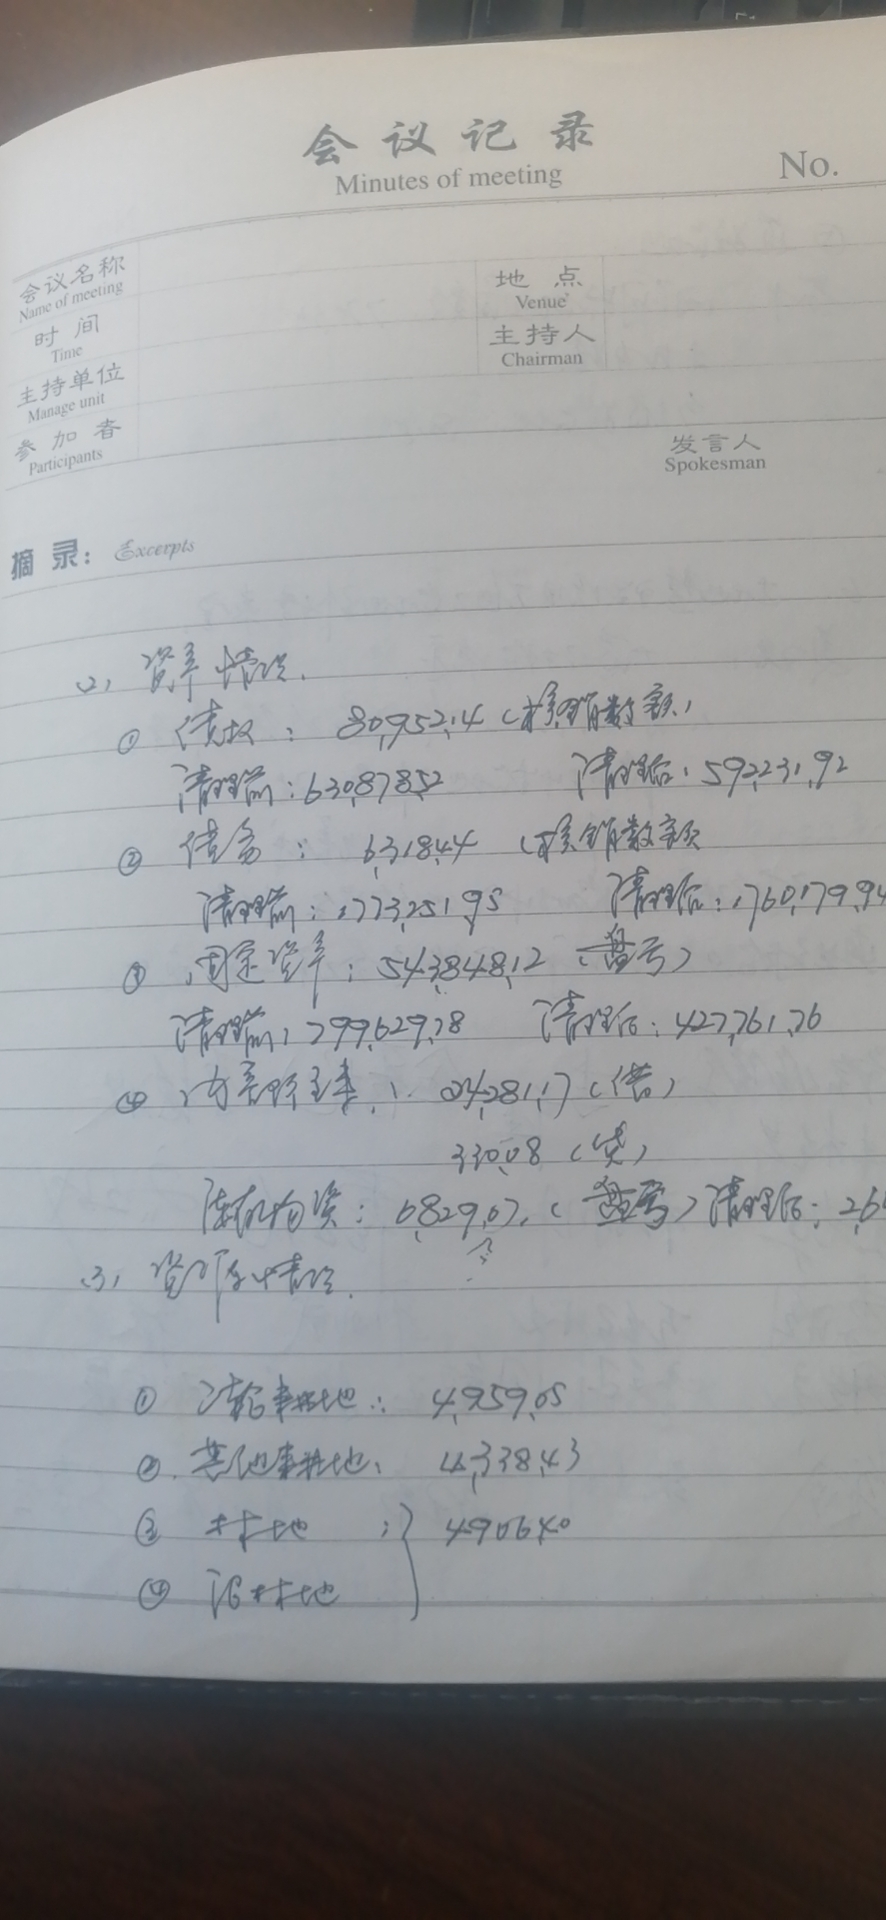 会议记录
Minutes of meeting
No.
会议名称
Name of meeting
地点
Venue
时间
Time
主持人
Chairman
主持单位
Manage unit
参加者
Participants
发言人
Spokesman
摘录: Excerpts
(2) 资产情况.
① 债权: 80,952.4 (核销数额)
清理前: 630,878.52 清理后: 592,231.92
② 债务: 6,318.44 (核销数额
清理前: 1,773,251.95 清理后: 1,760,179.94
③ 固定资产: 543,848.12 (盘亏)
清理前: 799,629.78 清理后: 427,761.76
④ 24,281.17 (借)
330.08 (贷)
物资: 6,829.07. (盘亏) 清理后: 26
(3) 资源情况.
① 耕地: 4,959.05
② 其他耕地: 4,338.43
③ 林地: 4906.40
④ 林地